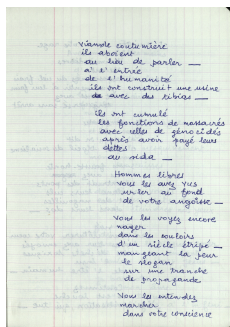 viande coutumière
ils aboient
au lieu de parler __
à l'entrée
de l'humanité
ils ont construit une usine
avec des tibias __
ils ont cumulé
les fonctions de massacrés
avec celles de génocidés
après avoir payé leurs
dettes
au sida __
Hommes libres
vous les avez vus
hurler au fond
de votre angoisse __
Vous les voyez encore
nager
dans les couloirs
d'un siècle étripé __
mangeant la peur
le slogan
sur une tranche
de propagande
Vous les entendez
marcher
dans votre conscience